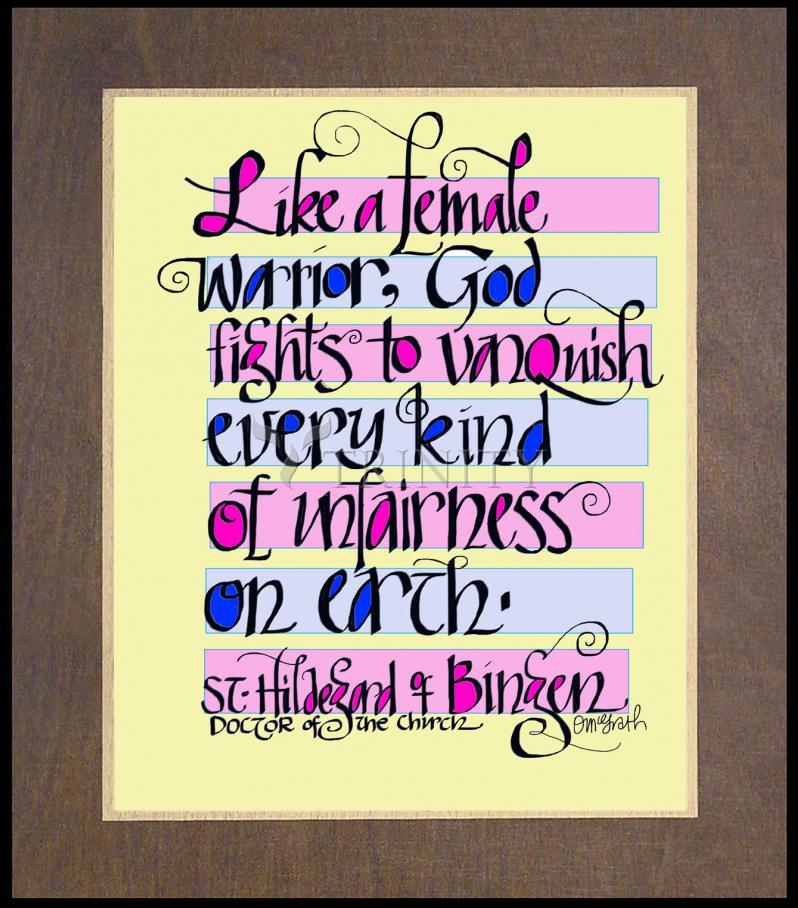 Like a female
warrior, God
fights to vanQuish
every kind
TRINITY
of unfairness
on earth.
ST. Hildegard of Bingen
DOCTOR of the Church
OMcGrath